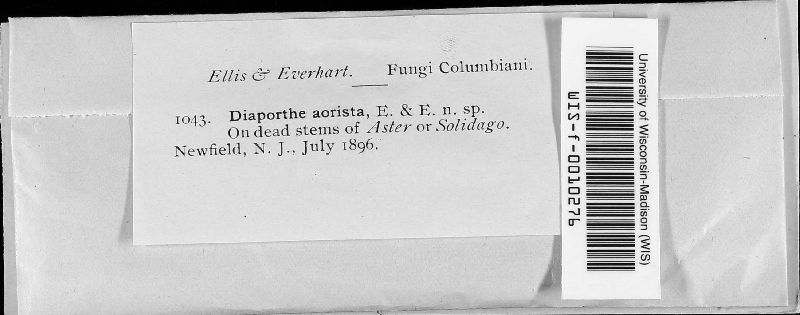 Ellis & Everhart. Fungi Columbiani.
1043. Diaporthe aorista, E. & E. n. sp.
On dead stems of Aster or Solidago.
Newfield, N. J., July 1896.
University of Wisconsin-Madison (WIS)
WIS-f-0010276